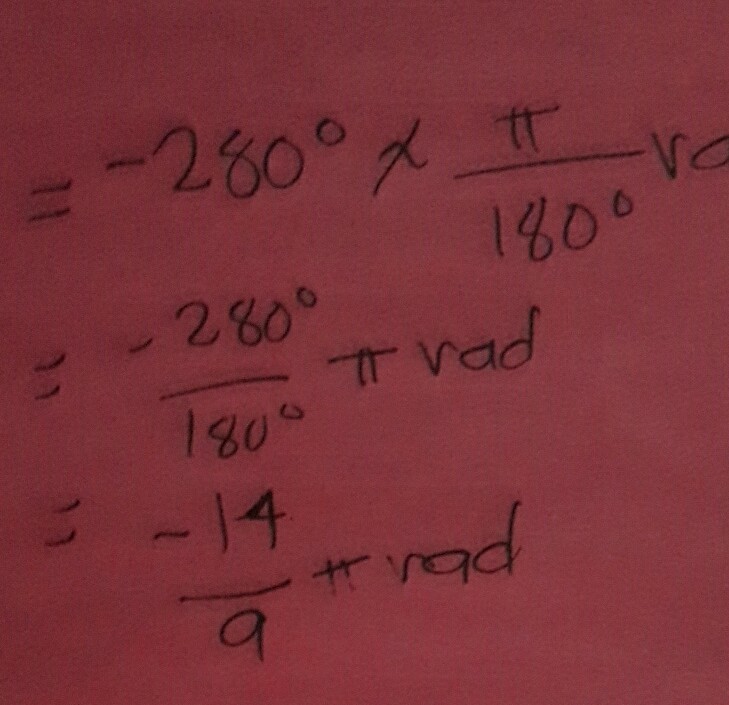 = -280° × π/180° ra
= -280°/180° π rad
= -14/9 π rad